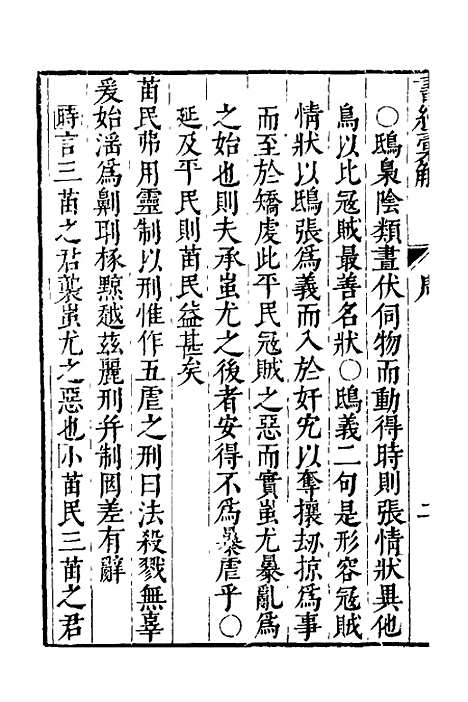 ○鴟梟陰類晝伏伺物而動得時則張情狀異他
鳥以比冦賊最善名狀○鴟義二句是形容冦賊
情狀以鴟張爲義而入於奸宄以奪攘刼掠爲事
而至於矯虔此平民冦賊之惡而實蚩尤暴亂爲
之始也則夫承蚩尤之後者安得不爲暴虐乎○
延及平民則苗民益甚矣
苗民弗用靈制以刑惟作五虐之刑曰法殺戮無辜
爰始淫爲劓刵椓黥越兹麗刑幷制罔差有辭
時言三苗之君襲蚩尤之惡也小苗民三苗之君